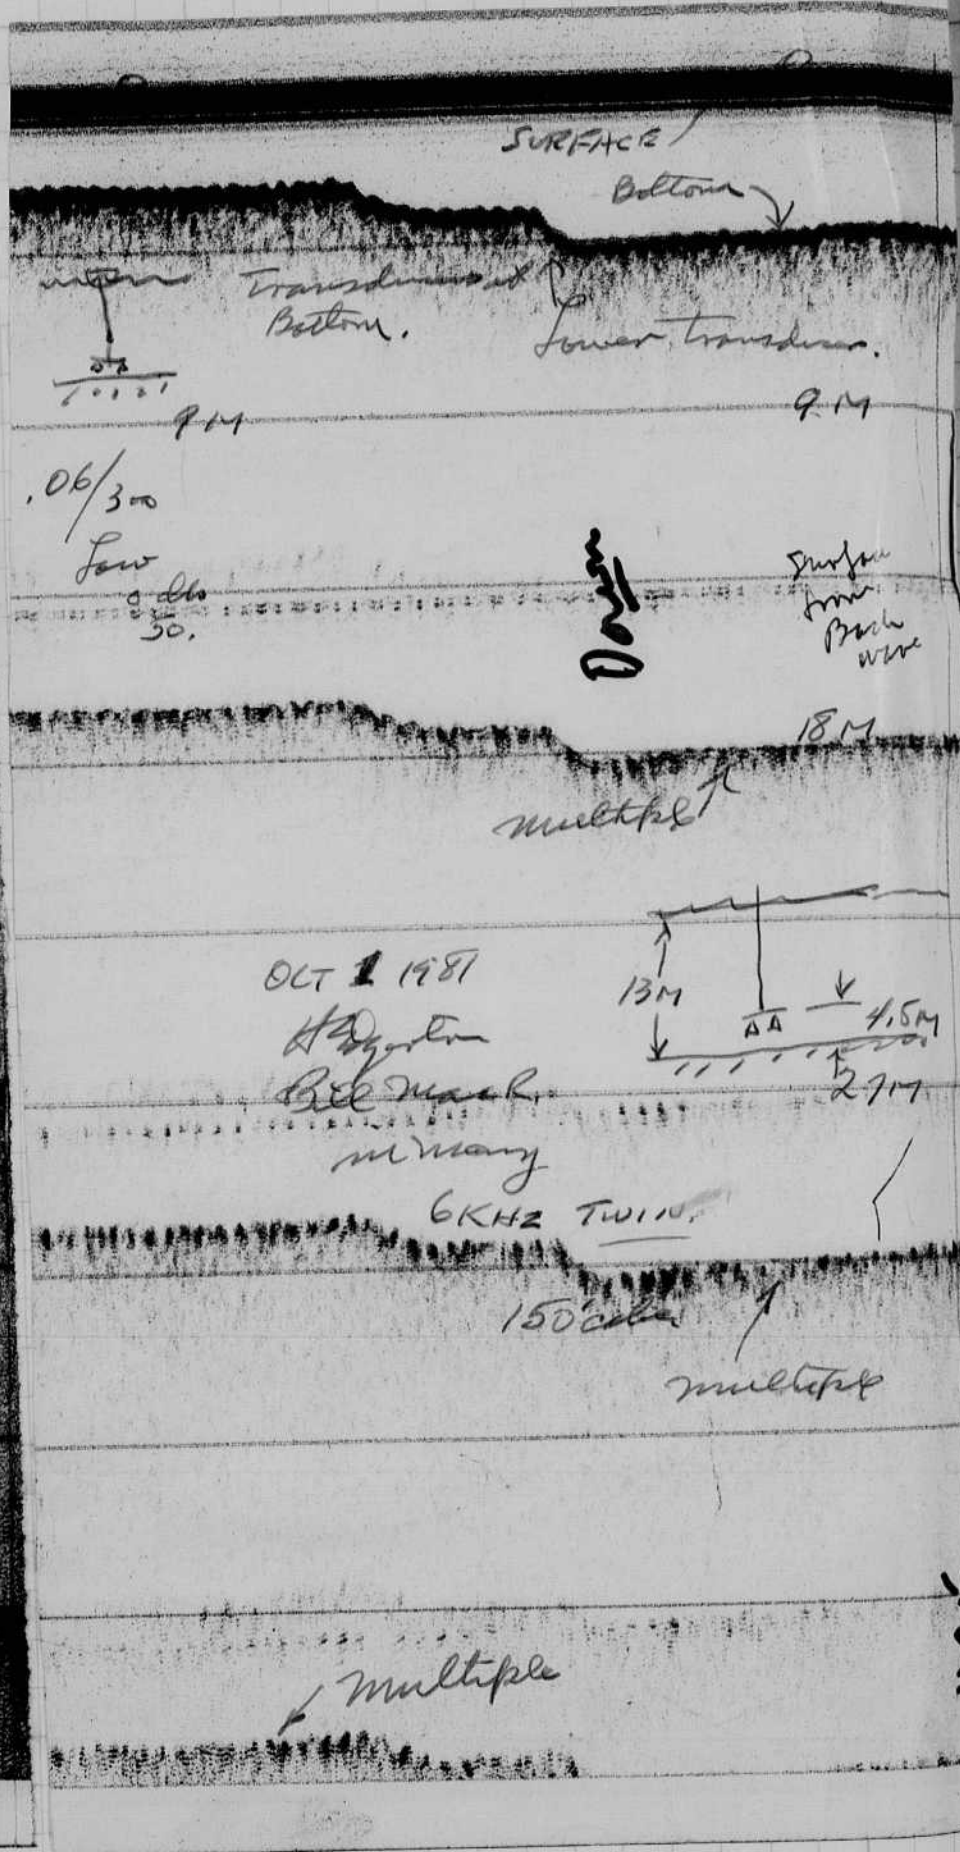 SURFACE
Bottom
Transducers at
Bottom.
Lower transducer.
9 M
9 M
.06/300
Low
0 db
50.
Down
Surface
from
Back
wave
18 M
multiple
OCT 1 1981
H Edgerton
Bill Mac R.
13M
4.5M
27M
6KHZ TWIN.
150'
multiple
multiple